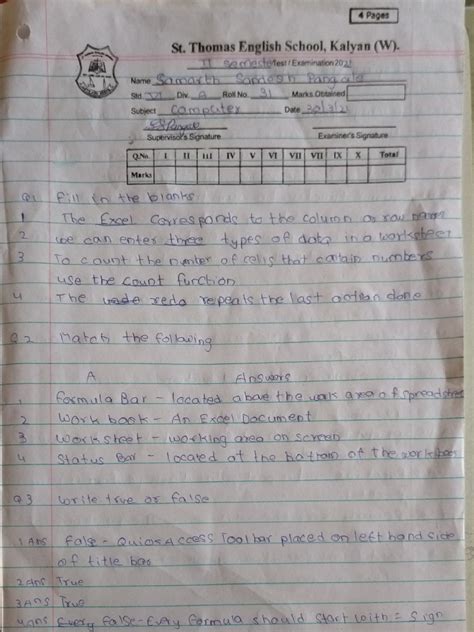 4 Pages
St. Thomas English School, Kalyan (W).
II Semester Test / Examination 2021
Name Samarth Sandesh Pangale
Std VI Div A Roll No. 31 Marks Obtained
Subject Computer Date 30/3/21
Supervisor's Signature Examiner's Signature
Q.No. I II III IV V VI VII VII IX X Total
Marks
Q1 Fill in the blanks
1 The Excel Corresponds to the column or row name
2 we can enter three types of data in a worksheet
3 To count the number of cells that contain numbers
use the count function
4 The redo repeals the last action done
Q.2 Match the following
A Answers
1 Formula Bar - located above the work area of spreadsheet
2 Work book - An Excel Document
3 Worksheet - working area on screen
4 Status Bar - located at the bottom of the
Q3 write true or false
1 Ans false - Quick Access Toolbar placed on left hand side
of title bar
2 Ans True
3 Ans True
4 Ans false - Every formula should start with = sign